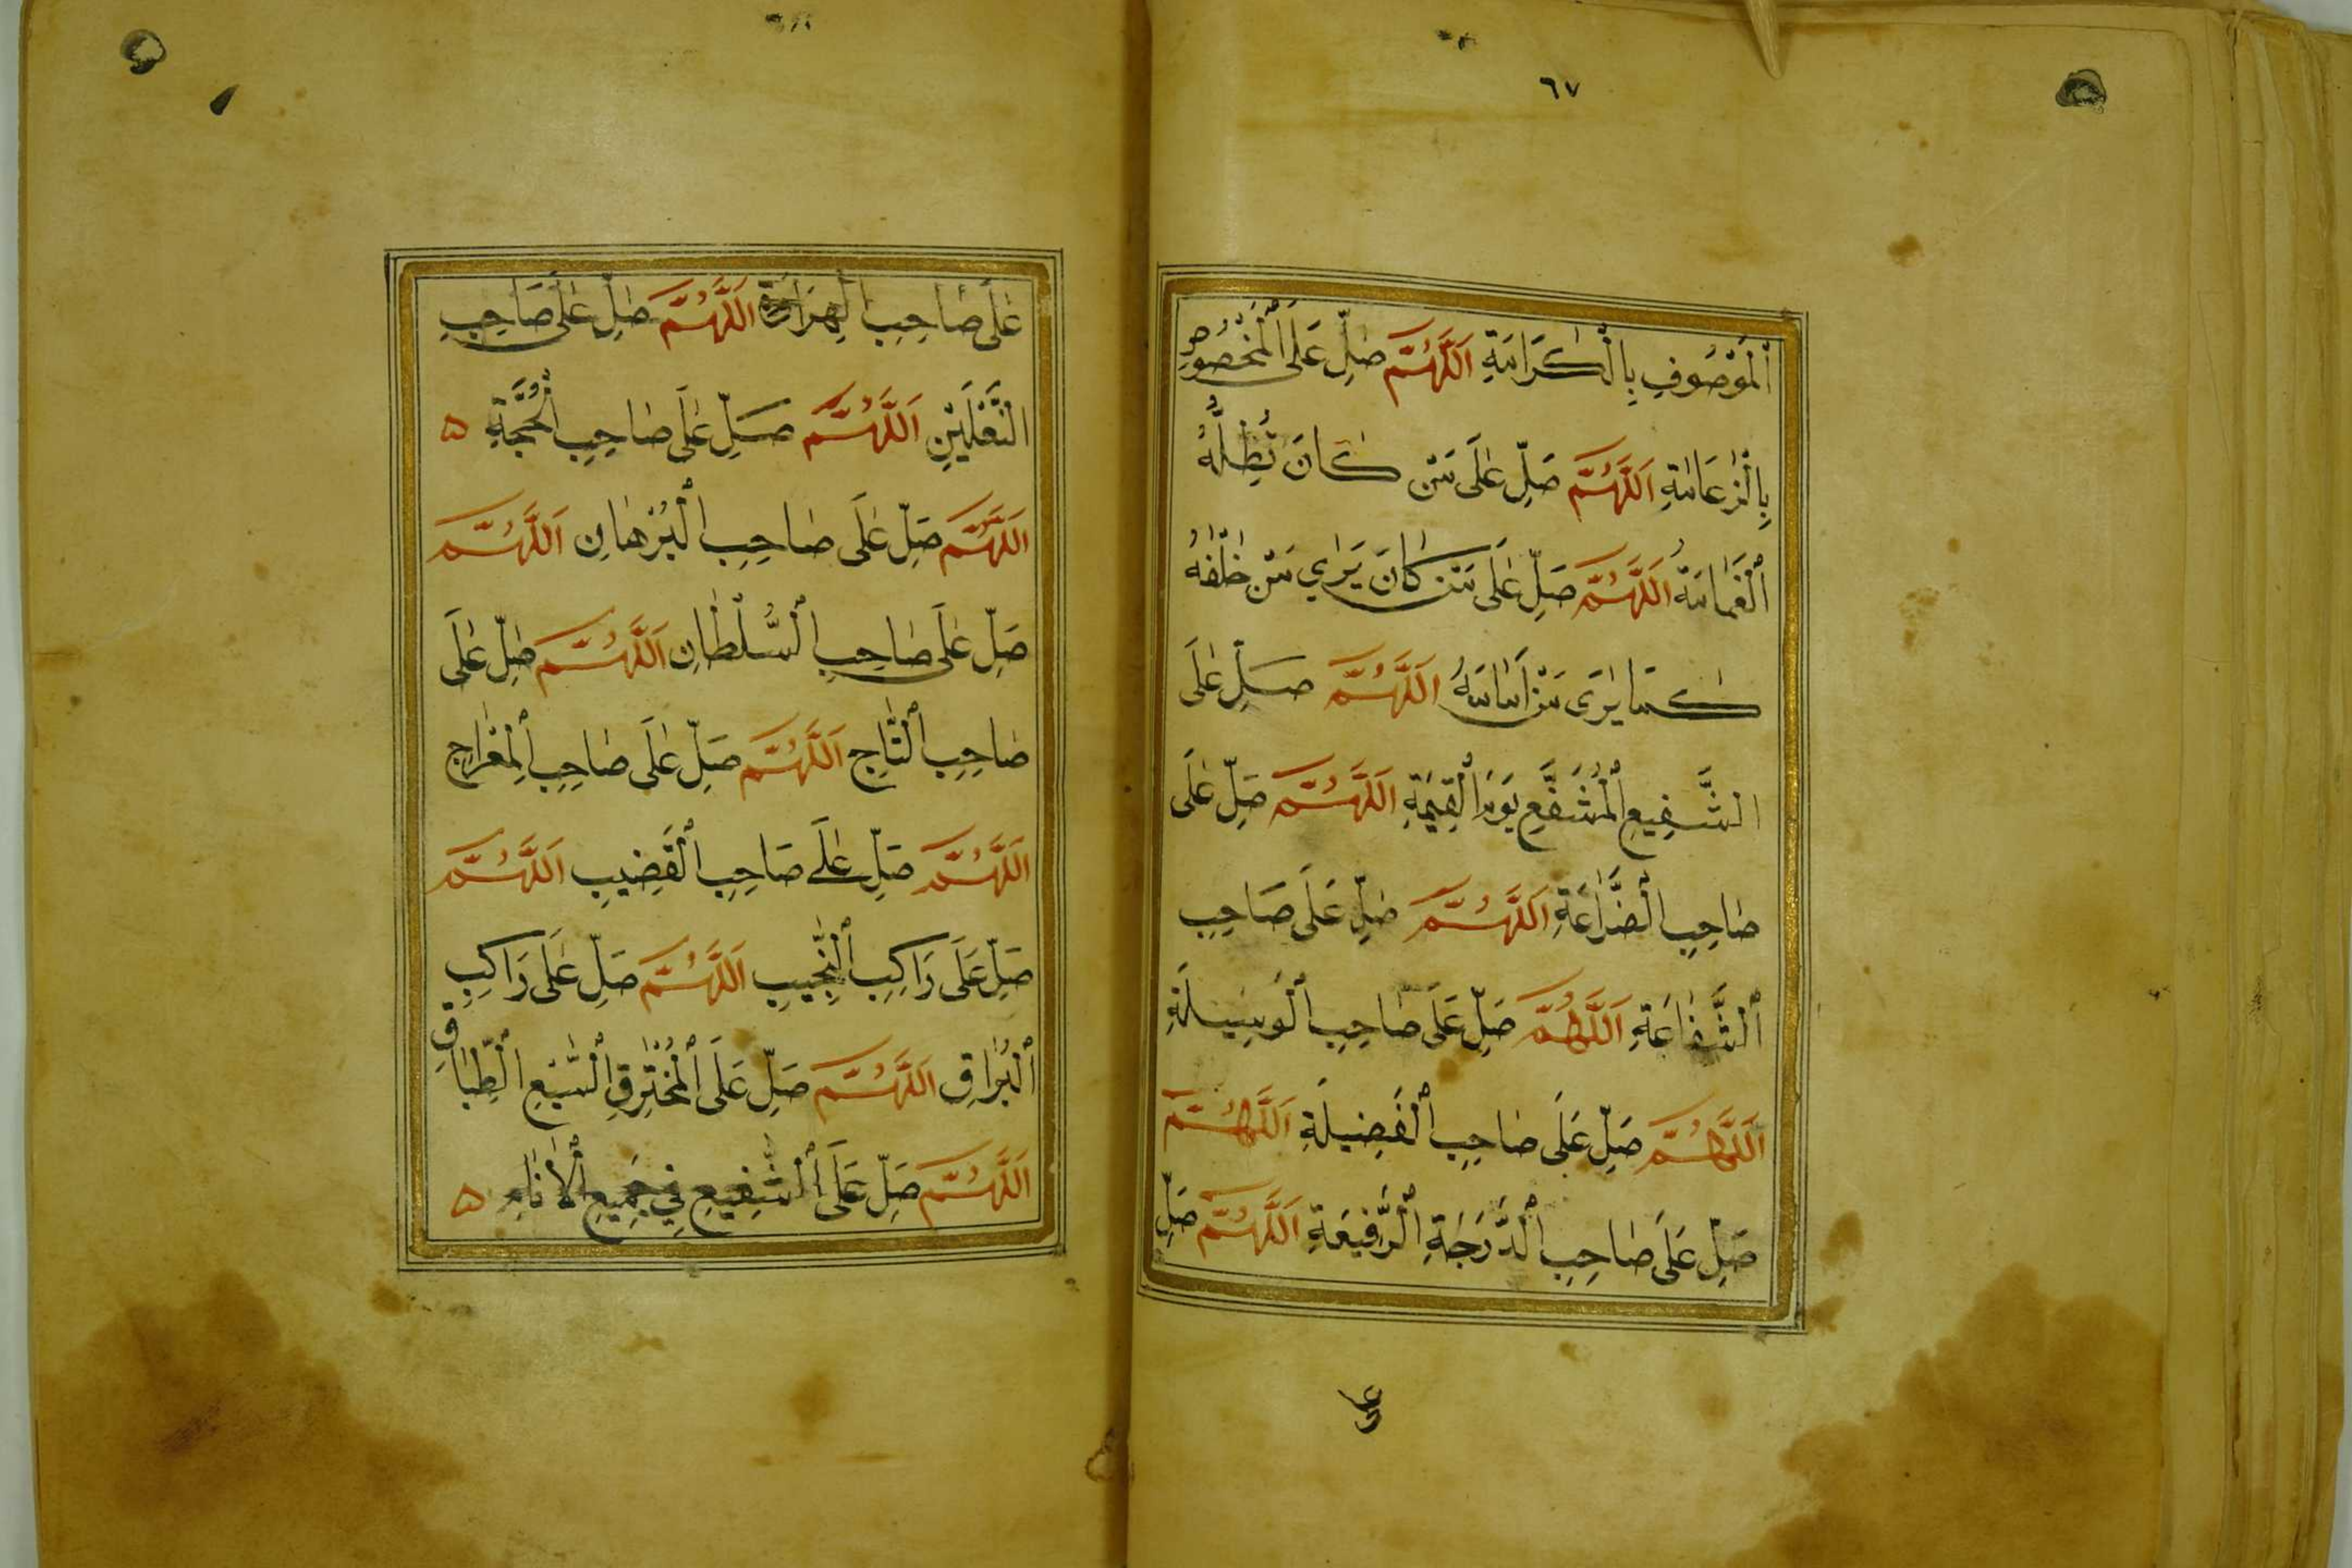 ٦٧
اَلْمَوْصُوفِ بِالْكَرَامَةِ اَللّٰهُمَّ صَلِّ عَلَى الْمَخْصُوصِ
بِالزَّعَامَةِ اَللّٰهُمَّ صَلِّ عَلَى مَنْ كَانَ تُظِلُّهُ
اَلْغَمَامَةُ اَللّٰهُمَّ صَلِّ عَلَى مَنْ كَانَ يَرٰي مَنْ خَلْفَهُ
كَمَا يَرٰى مَنْ اَمَامَهُ اَللّٰهُمَّ صَلِّ عَلَى
الشَّفِيعِ الْمُشَفَّعِ يَوْمَ الْقِيٰمَةِ اَللّٰهُمَّ صَلِّ عَلَى
صَاحِبِ الضَّرَاعَةِ اَللّٰهُمَّ صَلِّ عَلَى صَاحِبِ
اَلشَّفَاعَةِ اَللّٰهُمَّ صَلِّ عَلَى صَاحِبِ الْوَسِيلَةِ
اَللّٰهُمَّ صَلِّ عَلَى صَاحِبِ الْفَضِيلَةِ اَللّٰهُمَّ
صَلِّ عَلَى صَاحِبِ الدَّرَجَةِ الرَّفِيعَةِ اَللّٰهُمَّ صَلِّ
عَلَى صَاحِبِ الْهِرَاوَةِ اَللّٰهُمَّ صَلِّ عَلَى صَاحِبِ
النَّعْلَيْنِ اَللّٰهُمَّ صَلِّ عَلَى صَاحِبِ الْحُجَّةِ ۵
اَللّٰهُمَّ صَلِّ عَلَى صَاحِبِ الْبُرْهَانِ اَللّٰهُمَّ
صَلِّ عَلَى صَاحِبِ السُّلْطَانِ اَللّٰهُمَّ صَلِّ عَلَى
صَاحِبِ التَّاجِ اَللّٰهُمَّ صَلِّ عَلَى صَاحِبِ الْمِعْرَاجِ
اَللّٰهُمَّ صَلِّ عَلَى صَاحِبِ الْقَضِيبِ اَللّٰهُمَّ
صَلِّ عَلَى رَاكِبِ النَّجِيبِ اَللّٰهُمَّ صَلِّ عَلَى رَاكِبِ
اَلْبُرَاقِ اَللّٰهُمَّ صَلِّ عَلَى الْمُخْتَرِقِ السَّبْعِ الطِّبَاقِ
اَللّٰهُمَّ صَلِّ عَلَى الشَّفِيعِ فِي جَمِيعِ الْاَنَامِ ۵